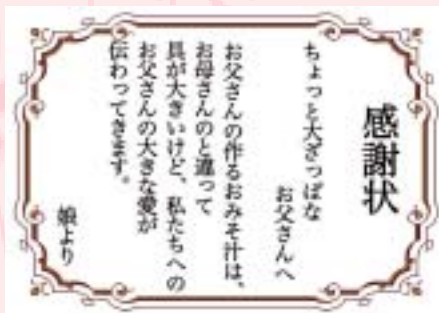 感謝状
ちょっと大ざっぱな
お父さんへ
お父さんの作るおみそ汁は、
お母さんのと違って
具が大きいけど、私たちへの
お父さんの大きな愛が
伝わってきます。
娘より